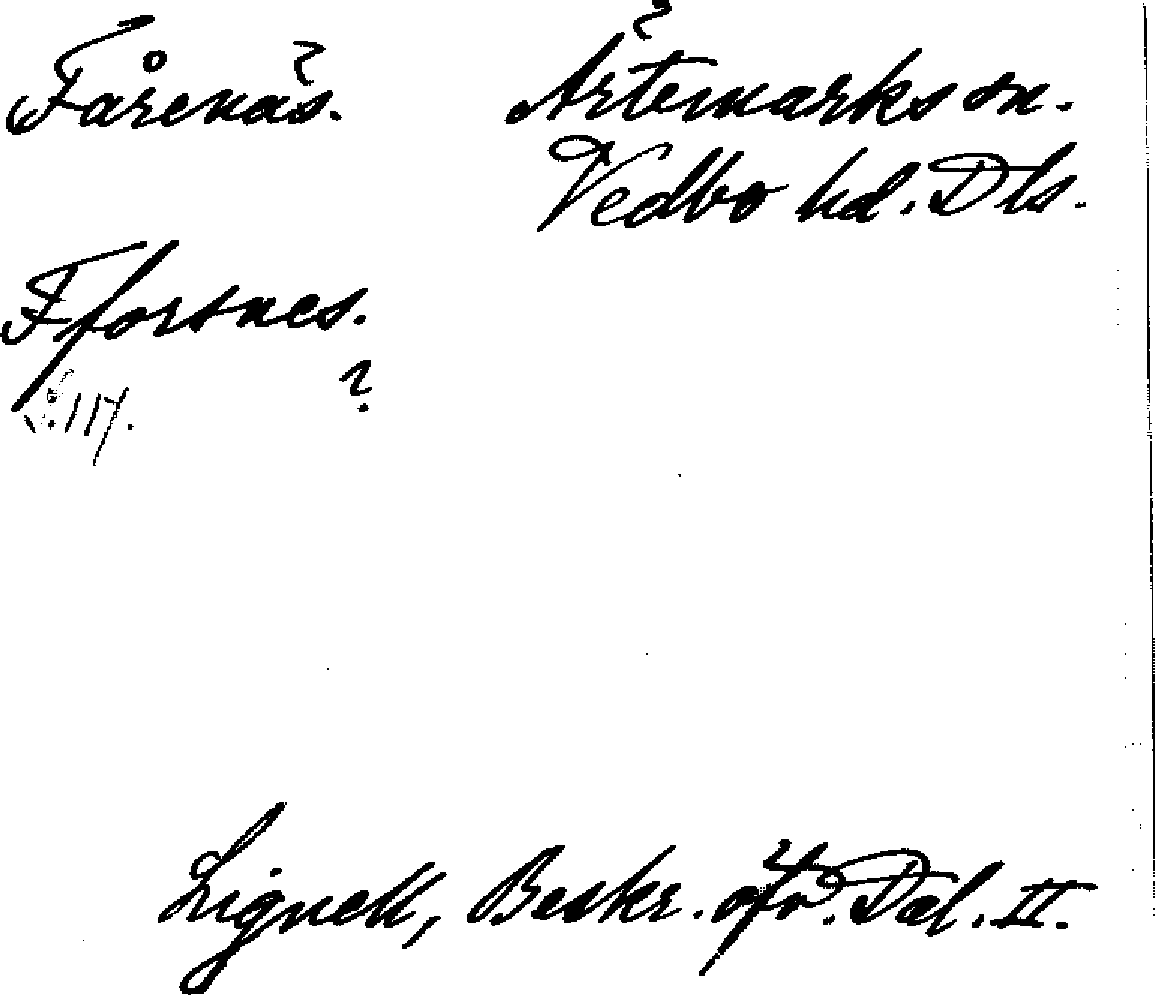 Fårenäs. Ärtemarks sn.
Vedbo hd. Dls.
Fforsnes.
?
s. 117.
Lignell, Beskr. öfv. Dal. II.